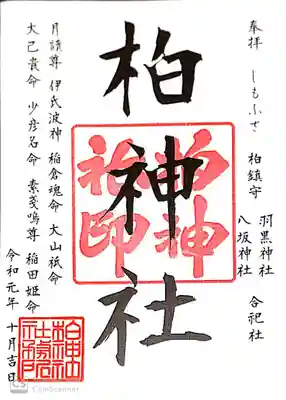 奉拝 しもふさ 柏鎮守 羽黒神社 八坂神社 合祀社
柏神社
柏神
社印
月讀尊 伊氏波神 稲倉魂命 大山祇命
大己貴命 少彦名命 素戔嗚尊 稲田姫命
令和元年 十月吉日
CS CamScanner